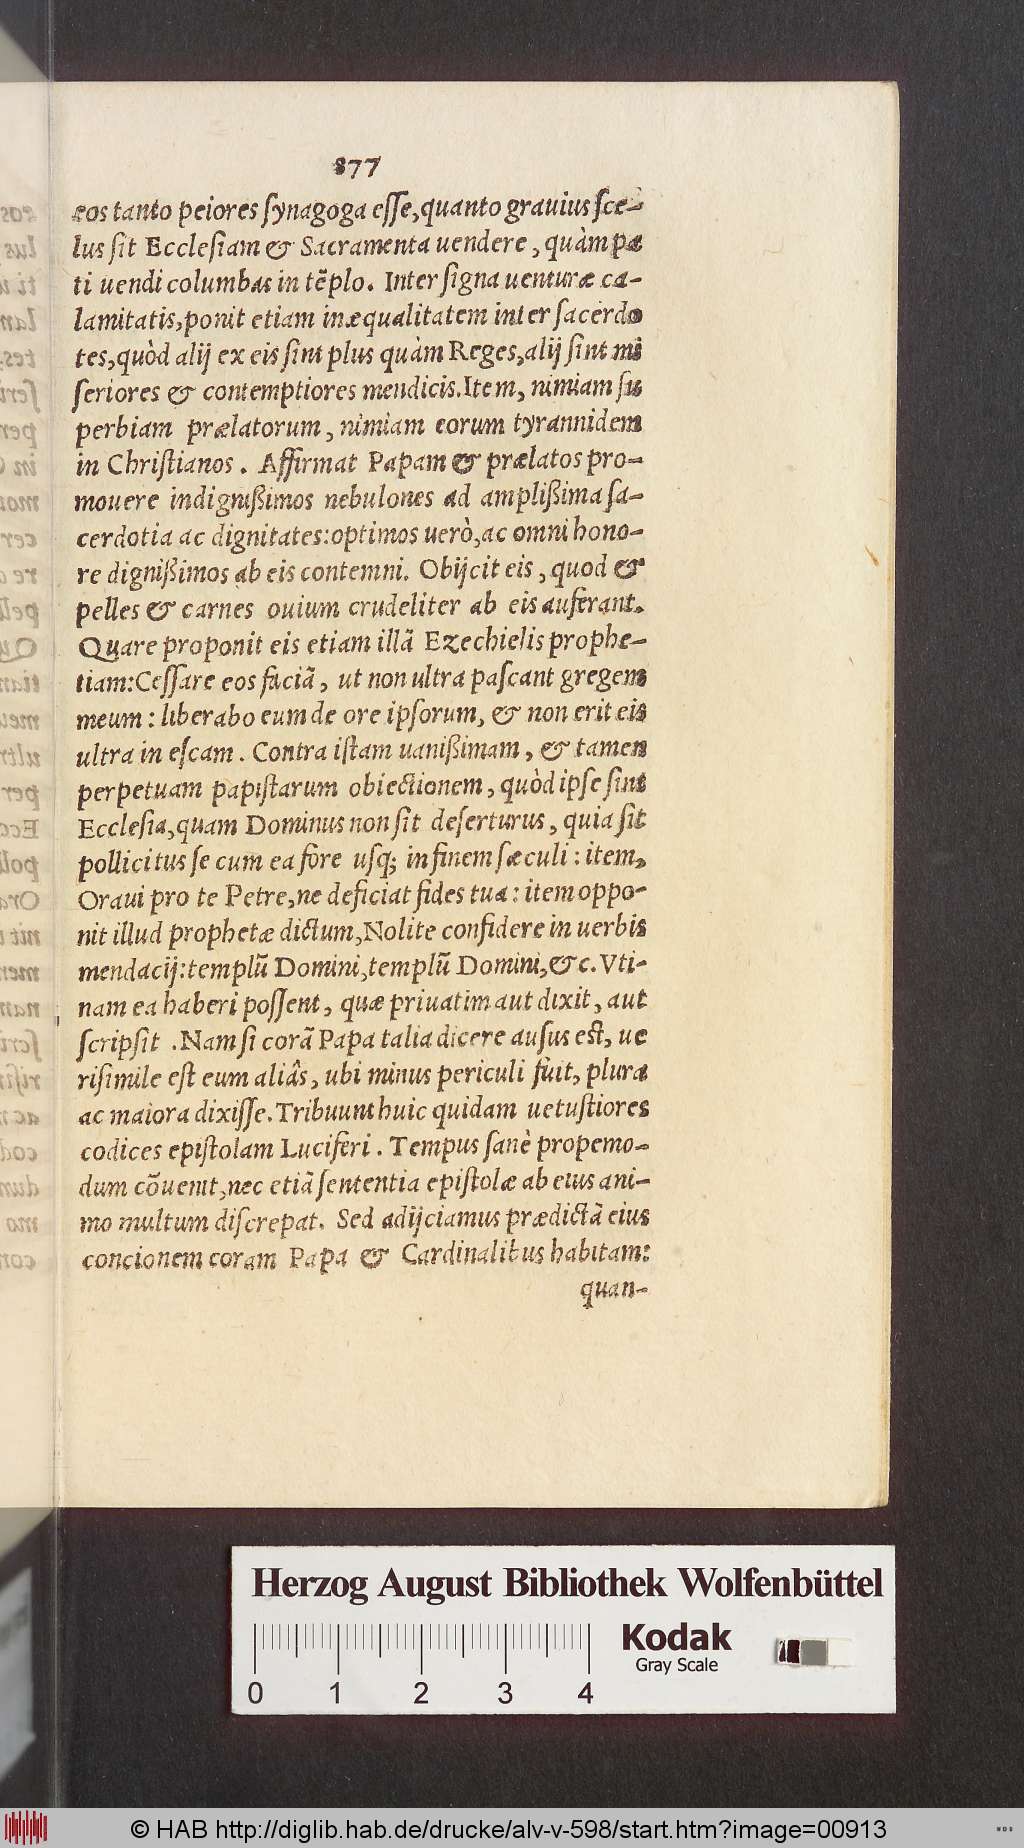 877
eos tanto peiores ſynagoga eſſe, quanto grauius ſce-
lus ſit Eccleſiam & Sacramenta uendere, quàm pa
ti uendi columbas in tẽplo. Inter ſigna uenturæ ca-
lamitatis, ponit etiam inæqualitatem inter ſacerdo
tes, quòd alij ex eis ſint plus quàm Reges, alij ſint mi
ſeriores & contemptiores mendicis. Item, nimiam ſu
perbiam prælatorum, nimiam eorum tyrannidem
in Chriſtianos. Affirmat Papam & prælatos pro-
mouere indignißimos nebulones ad amplißima ſa-
cerdotia ac dignitates: optimos uerò, ac omni hono-
re dignißimos ab eis contemni. Obijcit eis, quod &
pelles & carnes ouium crudeliter ab eis auferant.
Quare proponit eis etiam illã Ezechielis prophe-
tiam: Ceſſare eos faciã, ut non ultra paſcant gregem
meum: liberabo eum de ore ipſorum, & non erit eis
ultra in eſcam. Contra iſtam uanißimam, & tamen
perpetuam papiſtarum obiectionem, quòd ipſe ſint
Eccleſia, quam Dominus non ſit deſerturus, quia ſit
pollicitus ſe cum ea fore uſq; in finem ſæculi: item,
Oraui pro te Petre, ne deficiat fides tua: item oppo-
nit illud prophetæ dictum, Nolite confidere in uerbis
mendacij: templũ Domini, templũ Domini, &c. Vti-
nam ea haberi poſſent, quæ priuatim aut dixit, aut
ſcripſit. Nam ſi corã Papa talia dicere auſus eſt, ue
riſimile eſt eum aliâs, ubi minus periculi fuit, plura
ac maiora dixiſſe. Tribuunt huic quidam uetuſtiores
codices epiſtolam Luciferi. Tempus ſanè propemo-
dum cõuenit, nec etiã ſententia epiſtolæ ab eius ani-
mo multum diſcrepat. Sed adijciamus prædictã eius
concionem coram Papa & Cardinalibus habitam:
quan-
Herzog August Bibliothek Wolfenbüttel
Kodak
Gray Scale
0 1 2 3 4
© HAB http://diglib.hab.de/drucke/alv-v-598/start.htm?image=00913